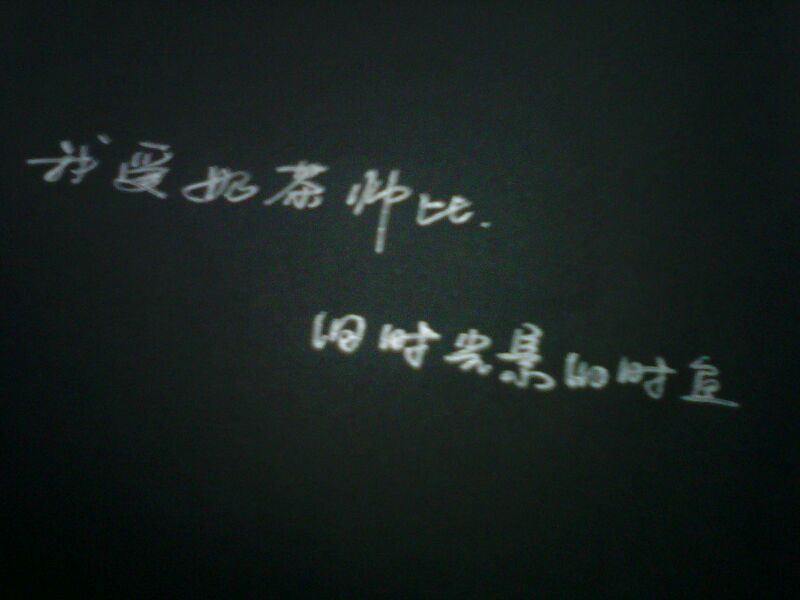 我爱奶茶帅比.
旧时光景的时宜